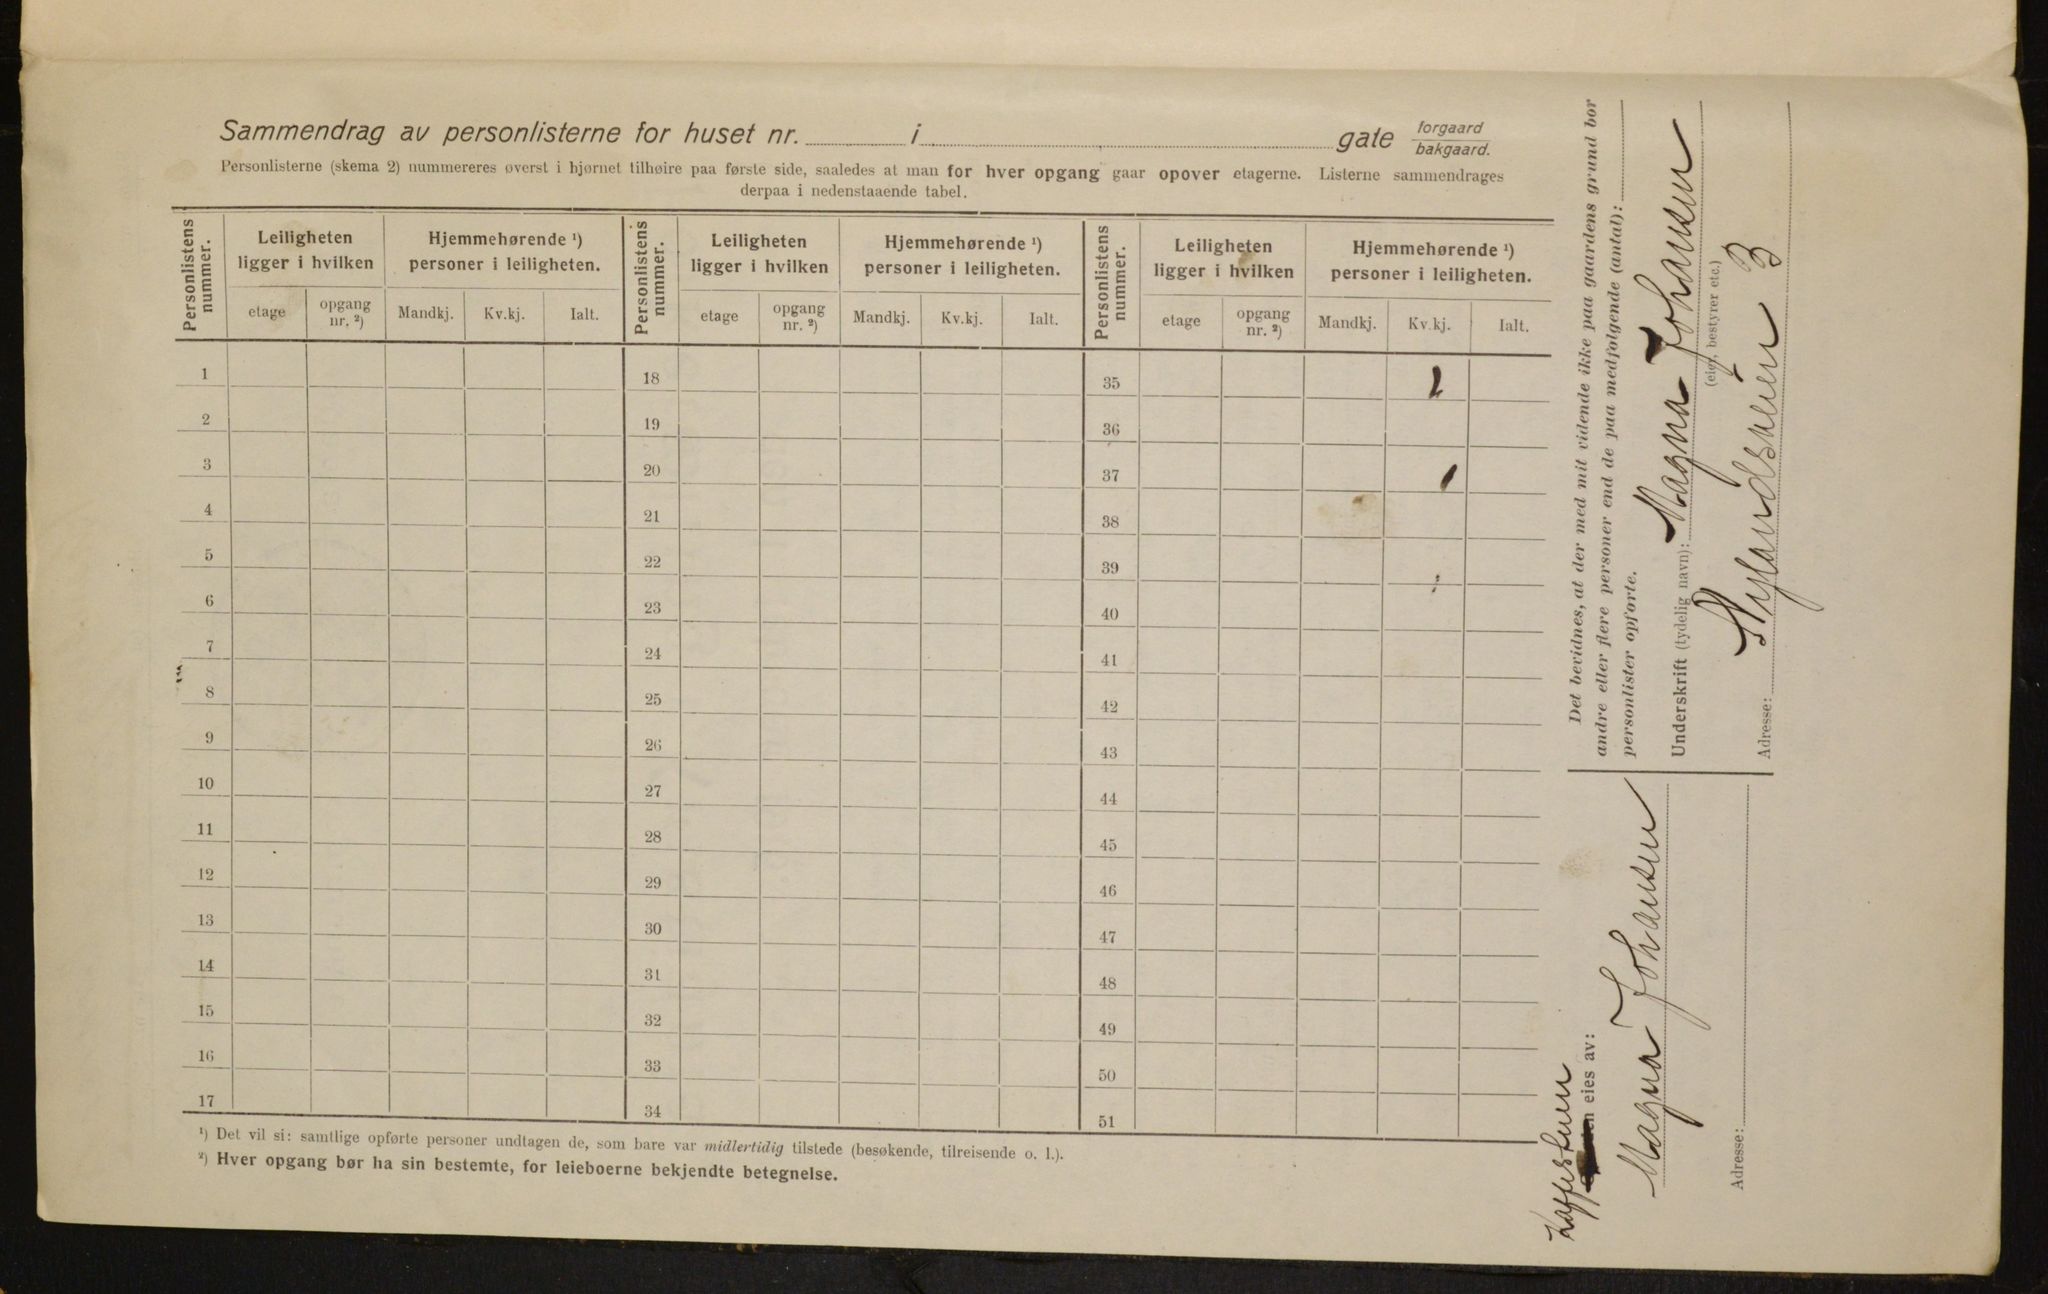 Sammendrag av personlisterne for huset nr. i gate forgaard bakgaard.
Personlisterne (skema 2) nummereres øverst i hjørnet tilhøire paa første side, saaledes at man for hver opgang gaar opover etagerne. Listerne sammendrages
derpaa i nedenstaaende tabel.
Personlistens nummer. Leiligheten ligger i hvilken Hjemmehørende ¹) personer i leiligheten. Personlistens nummer. Leiligheten ligger i hvilken Hjemmehørende ¹) personer i leiligheten. Personlistens nummer. Leiligheten ligger i hvilken Hjemmehørende ¹) personer i leiligheten.
etage opgang nr. ²) Mandkj. Kv.kj. Ialt. etage opgang nr. ²) Mandkj. Kv.kj. Ialt. etage opgang nr. ²) Mandkj. Kv.kj. Ialt.
1 18 35
2 19 36
3 20 37
4 21 38
5 22 39
6 23 40
7 24 41
8 25 42
9 26 43
10 27 44
11 28 45
12 29 46
13 30 47
14 31 48
15 32 49
16 33 50
17 34 51
¹) Det vil si: samtlige opførte personer undtagen de, som bare var midlertidig tilstede (besøkende, tilreisende o. l.).
²) Hver opgang bør ha sin bestemte, for leieboerne bekjendte betegnelse.
Det bevidnes, at der med mit vidende ikke paa gaardens grund bor
andre eller flere personer end de paa medfølgende (antal):
personlister opførte.
Underskrift (tydelig navn): Magna Johansen
(eier, bestyrer etc.)
Adresse: Nylandsveien 3
eies av:
Magna Johansen
Adresse: